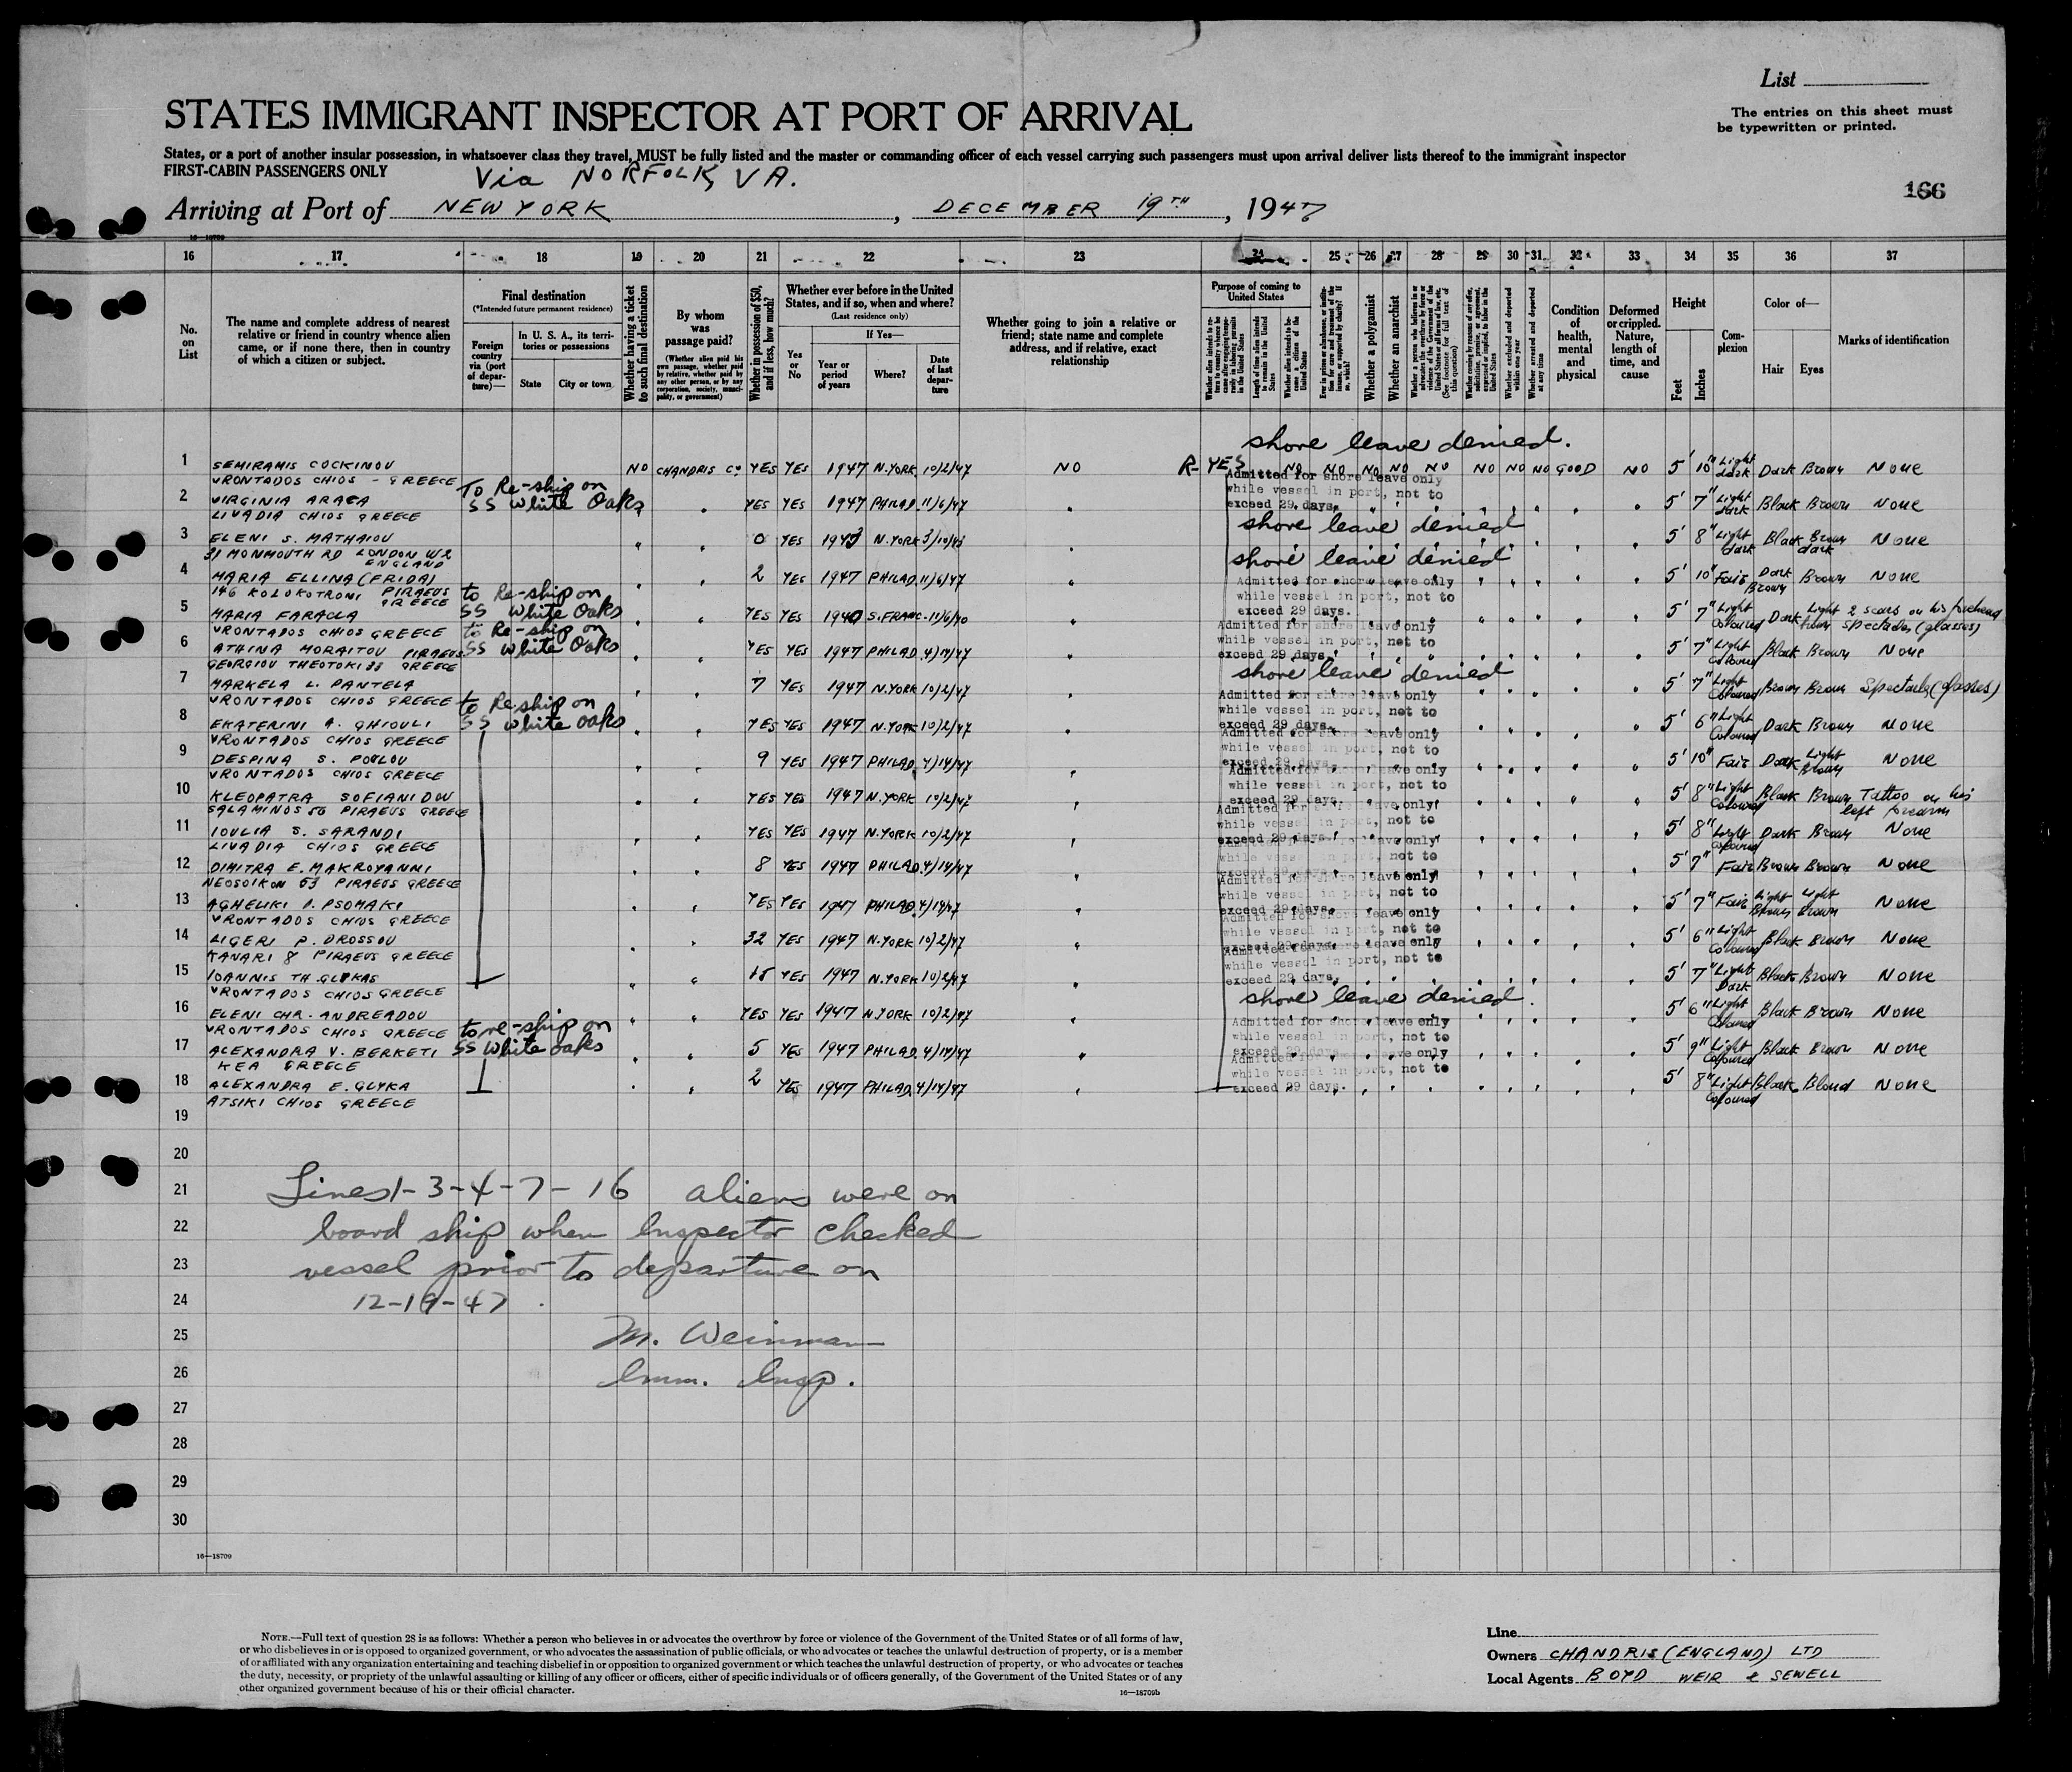 List
The entries on this sheet must
be typewritten or printed.
STATES IMMIGRANT INSPECTOR AT PORT OF ARRIVAL
States, or a port of another insular possession, in whatsoever class they travel, MUST be fully listed and the master or commanding officer of each vessel carrying such passengers must upon arrival deliver lists thereof to the immigrant inspector
FIRST-CABIN PASSENGERS ONLY
Via NORFOLK, VA.
166
Arriving at Port of NEW YORK, DECEMBER 19TH, 1947
16 17 18 19 20 21 22 23 24 25 26 27 28 29 30 31 32 33 34 35 36 37
No. on List
The name and complete address of nearest relative or friend in country whence alien came, or if none there, then in country of which a citizen or subject.
Final destination
(*Intended future permanent residence)
Foreign country via (port of departure)—
In U. S. A., its territories or possessions
State
City or town
Whether having a ticket to such final destination
By whom was passage paid?
(Whether alien paid his own passage, whether paid by relative, whether paid by any other person, or by any corporation, society, municipality, or government)
Whether in possession of $50, and if less, how much?
Whether ever before in the United States, and if so, when and where?
(Last residence only)
Yes or No
If Yes—
Year or period of years
Where?
Date of last departure
Whether going to join a relative or friend; state name and complete address, and if relative, exact relationship
Purpose of coming to United States
Whether a polygamist
Whether an anarchist
Condition of health, mental and physical
Deformed or crippled. Nature, length of time, and cause
Height
Feet
Inches
Complexion
Color of—
Hair
Eyes
Marks of identification
shore leave denied.
1 SEMIRAMIS COCKINOU NO CHANDRIS Co YES YES 1947 N.YORK 10/2/47 NO R- YES NO NO NO NO NO NO NO NO GOOD NO 5' 10" Light dark Dark Brown None
VRONTADOS CHIOS - GREECE
To Re-ship on
SS White Oaks
Admitted for shore leave only
while vessel in port, not to
exceed 29 days.
2 VIRGINIA ARACA YES YES 1947 PHILAD. 11/6/47 5' 7" Light dark Black Brown None
LIVADIA CHIOS GREECE
shore leave denied
3 ELENI S. MATHAIOU 0 YES 1943 N.YORK 5' 8" Light dark Black Brown dark None
31 MONMOUTH RD LONDON W2
ENGLAND
shore leave denied
4 MARIA ELLINA (FRIDA) 2 YES 1947 PHILAD. 11/6/47 5' 10" Fair Dark Brown Brown None
146 KOLOKOTRONI PIRAEUS
GREECE
to Re-ship on
SS White Oaks
Admitted for shore leave only
while vessel in port, not to
exceed 29 days.
5 MARIA FARACLA YES YES 1940 S.FRANC. 11/6/40 5' 7" Light Coloured Dark Light brown 2 scars on his forehead
spectacles (glasses)
VRONTADOS CHIOS GREECE
to Re-ship on
SS White Oaks
Admitted for shore leave only
while vessel in port, not to
exceed 29 days.
6 ATHINA MORAITOU PIRAEUS YES YES 1947 PHILAD. 4/14/47 5' 7" Light Coloured Black Brown None
GEORGIOU THEOTOKI 33 GREECE
shore leave denied
7 MARKELA L. PANTELA 7 YES 1947 N.YORK 10/2/47 5' 7" Light Coloured Brown Brown Spectacles (glasses)
VRONTADOS CHIOS GREECE
to Re ship on
SS White Oaks
Admitted for shore leave only
while vessel in port, not to
exceed 29 days.
8 EKATERINI A. GHIOULI YES YES 1947 N.YORK 10/2/47 5' 6" Light Coloured Dark Brown None
VRONTADOS CHIOS GREECE
Admitted for shore leave only
while vessel in port, not to
exceed 29 days.
9 DESPINA S. POULOU 9 YES 1947 PHILAD. 4/14/47 5' 10" Fair Dark Light Brown None
VRONTADOS CHIOS GREECE
Admitted for shore leave only
while vessel in port, not to
exceed 29 days.
10 KLEOPATRA SOFIANIDOU YES YES 1947 N.YORK 10/2/47 5' 8" Light Coloured Black Brown Tattoo on his
left forearm
SALAMINOS 50 PIRAEUS GREECE
Admitted for shore leave only
while vessel in port, not to
exceed 29 days.
11 IOULIA S. SARANDI YES YES 1947 N.YORK 10/2/47 5' 8" Light Coloured Dark Brown None
LIVADIA CHIOS GREECE
leave only
while vessel in port, not to
12 DIMITRA E. MAKROYANNI 8 YES 1947 PHILAD. 4/14/47 5' 7" Fair Brown Brown None
NEOSOIKON 53 PIRAEUS GREECE
Admitted for shore leave only
while vessel in port, not to
exceed 29 days.
13 AGHELIKI D. PSOMAKI YES YES 1947 PHILAD. 4/14/47 5' 7" Fair Light Brown Light Brown None
VRONTADOS CHIOS GREECE
Admitted for shore leave only
while vessel in port, not to
exceed 29 days.
14 LIGERI P. DROSSOU 32 YES 1947 N.YORK 10/2/47 5' 6" Light Coloured Black Brown None
KANARI 8 PIRAEUS GREECE
Admitted for shore leave only
while vessel in port, not to
exceed 29 days.
15 IOANNIS TH. GLYKAS 15 YES 1947 N.YORK 10/2/47 5' 7" Light Dark Black Brown None
VRONTADOS CHIOS GREECE
shore leave denied.
16 ELENI CHR. ANDREADOU YES YES 1947 N.YORK 10/2/47 5' 6" Light Coloured Black Brown None
VRONTADOS CHIOS GREECE
to re-ship on
SS White Oaks
Admitted for shore leave only
while vessel in port, not to
exceed 29 days
17 ALEXANDRA V. BERKETI 5 YES 1947 PHILAD. 4/14/47 5' 9" Light Coloured Black Brown None
KEA GREECE
Admitted leave only
while vessel in port, not to
exceed 29 days.
18 ALEXANDRA E. GLYKA 2 YES 1947 PHILAD. 4/14/47 5' 8" Light Coloured Black Blond None
ATSIKI CHIOS GREECE
19
20
21 Lines 1-3-4-7-16 aliens were on
22 board ship when Inspector checked
23 vessel prior to departure on
24 12-19-47.
25 M. Weinman
26 Imm. Insp.
27
28
29
30
16—18709
NOTE.—Full text of question 28 is as follows: Whether a person who believes in or advocates the overthrow by force or violence of the Government of the United States or of all forms of law,
or who disbelieves in or is opposed to organized government, or who advocates the assassination of public officials, or who advocates or teaches the unlawful destruction of property, or is a member
of or affiliated with any organization entertaining and teaching disbelief in or opposition to organized government or which teaches the unlawful destruction of property, or who advocates or teaches
the duty, necessity, or propriety of the unlawful assaulting or killing of any officer or officers, either of specific individuals or of officers generally, of the Government of the United States or of any
other organized government because of his or their official character.
16—18709b
Line
Owners CHANDRIS (ENGLAND) LTD
Local Agents BOYD WEIR & SEWELL